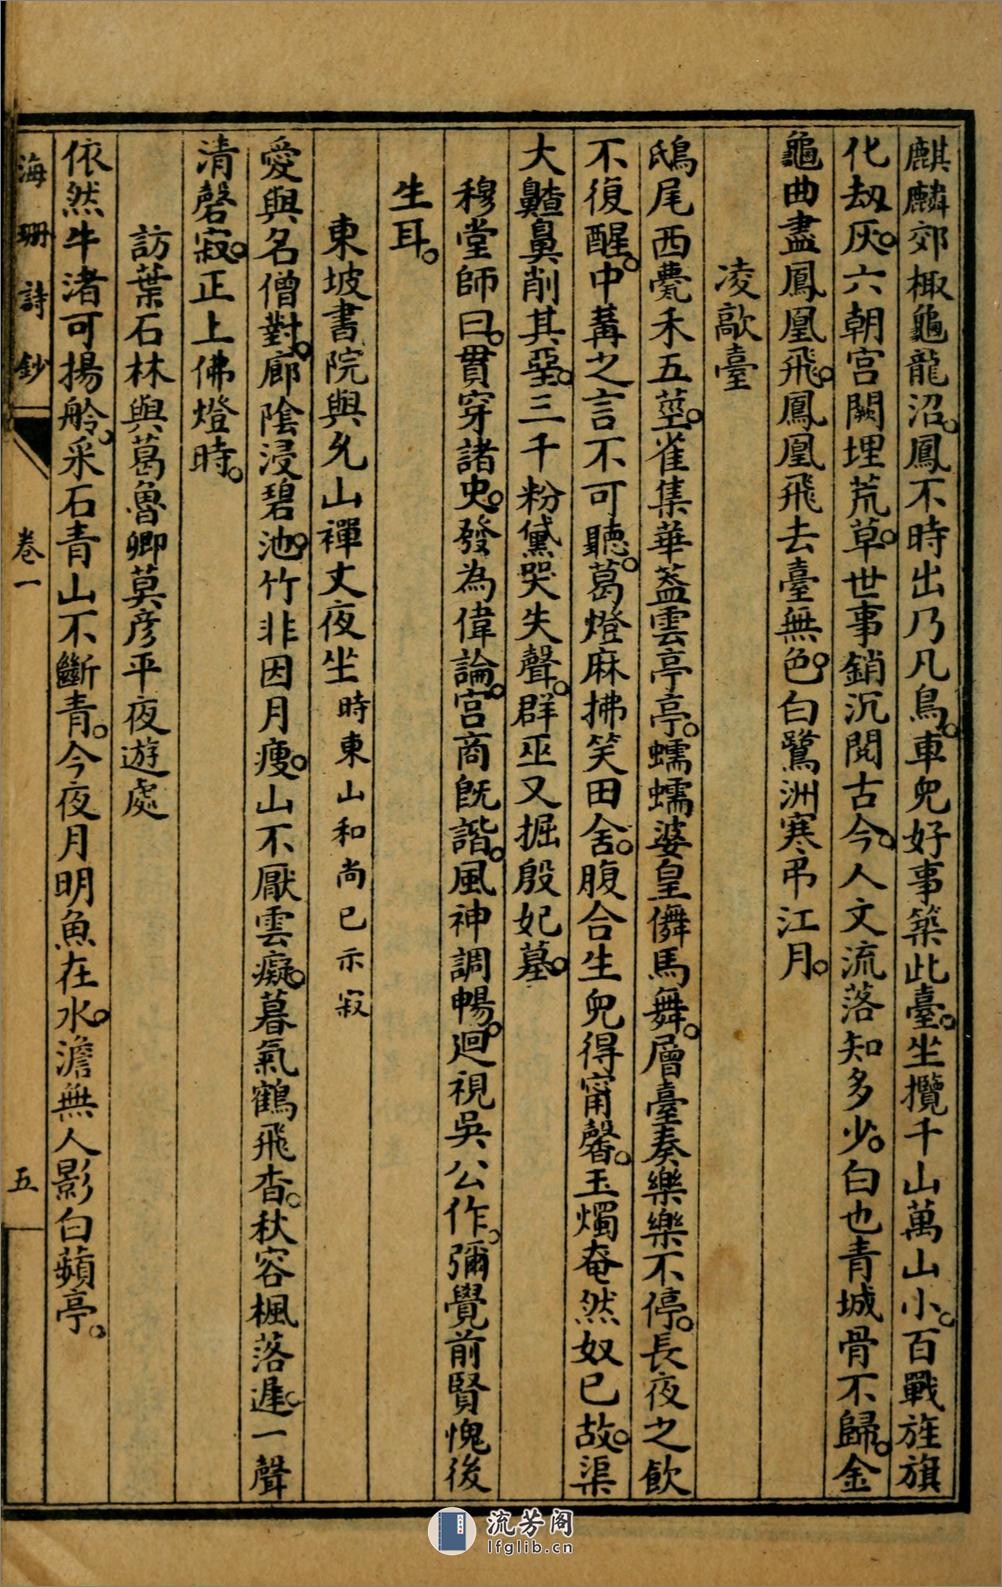 麒麟郊棷龜龍沼。鳳不時出乃凡鳥。車兒好事築此臺。坐攬千山萬山小。百戰旌旗
化刼灰。六朝宮闕埋荒草。世事銷沉閱古今。人文流落知多少。白也青城骨不歸。金
龜曲盡鳳凰飛。鳳凰飛去臺無色。白鷺洲寒弔江月。
凌歊臺
鴟尾西甍禾五莖。雀集華蓋雲亭亭。蠕蠕婆皇儛馬舞。層臺奏樂樂不停。長夜之飲
不復醒。中冓之言不可聽。葛燈麻拂笑田舍。腹合生兒得甯馨。玉燭奄然奴已故。渠
大齇鼻削其堊。三千粉黛哭失聲。群巫又掘殷妃墓。
穆堂師曰。貫穿諸史。發為偉論。宮商旣諧。風神調暢。迴視吳公作。彌覺前賢愧後
生耳。
東坡書院與允山禪丈夜坐時東山和尚已示寂
愛與名僧對。廊陰浸碧池。竹非因月瘦。山不厭雲癡。暮氣鶴飛杳。秋容楓落遲。一聲
清磬寂。正上佛燈時。
訪葉石林與葛魯卿莫彥平夜遊處
依然牛渚可揚舲。采石青山不斷青。今夜月明魚在水。澹無人影白蘋亭。
海珊詩鈔
卷一
五
流芳阁
lfglib.cn